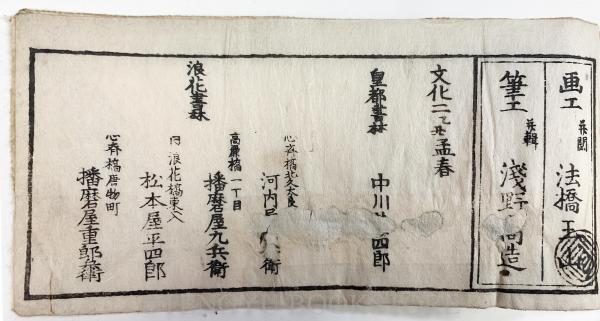 画工 兼閲 法橋玉山
筆工 兼輯 淺野高造
文化二乙丑孟春
皇都書林 中川 四郎
心斉橋北久太良
河内 兵衛
浪花書林
高麗橋一丁目
播磨屋九兵衛
同 浪花橋東入
松本屋平四郎
心斉橋唐物町
播磨屋重郎兵衛